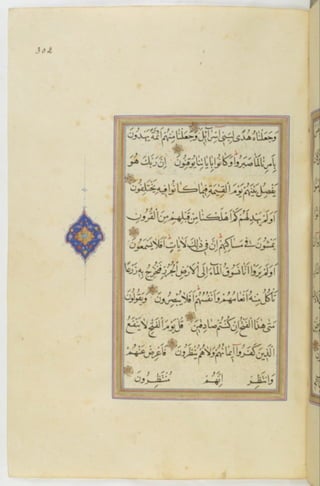 302
وَجَعَلْنَاهُ هُدًى لِبَنِي إِسْرَائِيلَ وَجَعَلْنَا مِنْهُمْ أَئِمَّةً يَهْدُونَ
بِأَمْرِنَا لَمَّا صَبَرُوا وَكَانُوا بِآيَاتِنَا يُوقِنُونَ إِنَّ رَبَّكَ هُوَ
يَفْصِلُ بَيْنَهُمْ يَوْمَ الْقِيَمَةِ فِيمَا كَانُوا فِيهِ يَخْتَلِفُونَ
أَوَلَمْ يَهْدِ لَهُمْ كَمْ أَهْلَكْنَا مِنْ قَبْلِهِمْ مِنَ الْقُرُونِ
يَمْشُونَ فِي مَسَاكِنِهِمْ إِنَّ فِي ذَلِكَ لَآيَاتٍ أَفَلَا يَسْمَعُونَ
أَوَلَمْ يَرَوْا أَنَّا نَسُوقُ الْمَاءَ إِلَى الْأَرْضِ الْجُرُزِ فَنُخْرِجُ بِهِ زَرْعًا
تَأْكُلُ مِنْهُ أَنْعَامُهُمْ وَأَنْفُسُهُمْ أَفَلَا يُبْصِرُونَ وَيَقُولُونَ
مَتَى هَذَا الْفَتْحُ إِنْ كُنْتُمْ صَادِقِينَ قُلْ يَوْمَ الْفَتْحِ لَا يَنْفَعُ
الَّذِينَ كَفَرُوا إِيمَانُهُمْ وَلَا هُمْ يُنْظَرُونَ فَأَعْرِضْ عَنْهُمْ
وَانْتَظِرْ إِنَّهُمْ مُنْتَظِرُونَ